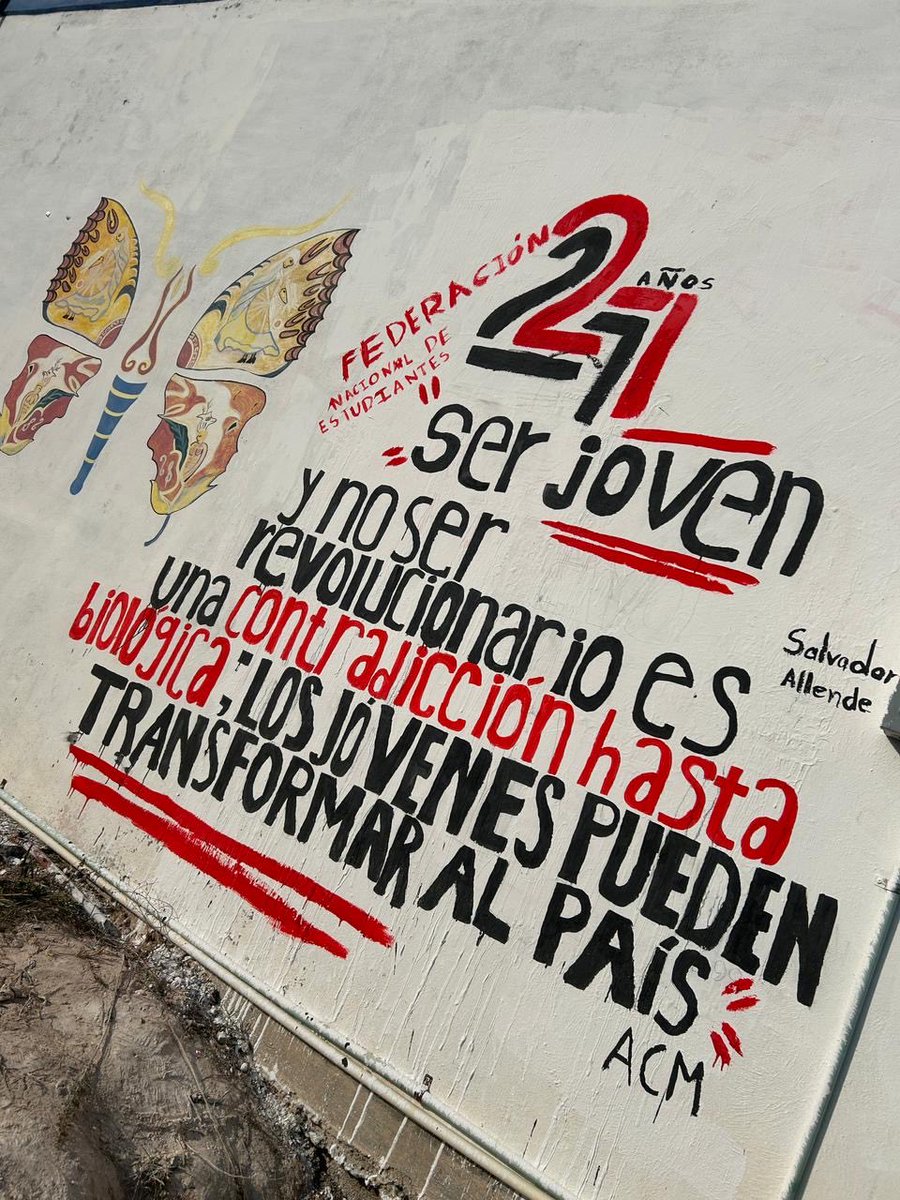 FEDERACIÓN
NACIONAL DE
ESTUDIANTES
27 AÑOS
"ser joven
y no ser
revolucionario es
una contradicción hasta
biológica", LOS JÓVENES PUEDEN
TRANSFORMAR AL PAÍS
Salvador
Allende
ACM